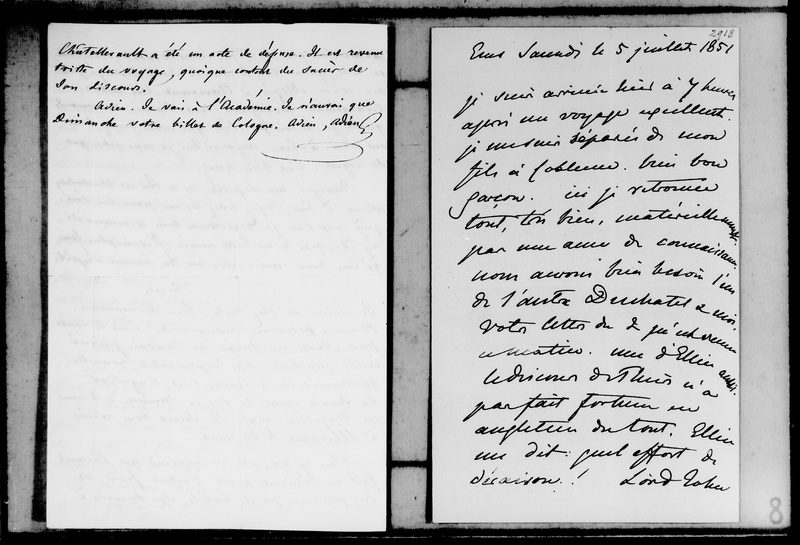 Chatellerault a été un acte de défense. Il est revenu
triste du voyage, quoique content du succès de
son discours.
Adieu. Je vais à l'Académie. Je n'aurai que
Dimanche votre billet de Cologne. Adieu, Adieu
2913
Ems Samedi le 5 juillet 1851
je suis arrivée hier à 7 heures
après un voyage excellent.
je me suis séparée de mon
fils à Coblence. bien bon
garçon. ici je retrouve
tout, très bien, matériellement
pas une ame de connaissance
nous avons bien besoin l'un
de l'autre Duchatel & moi.
Votre lettre du 2 m'est venue
ce matin. une d'Ellice aussi.
le discours de Thiers n'a
pas fait fortune en
angleterre du tout. Ellice
me dit: quel effort de
déraison! Lord John
8